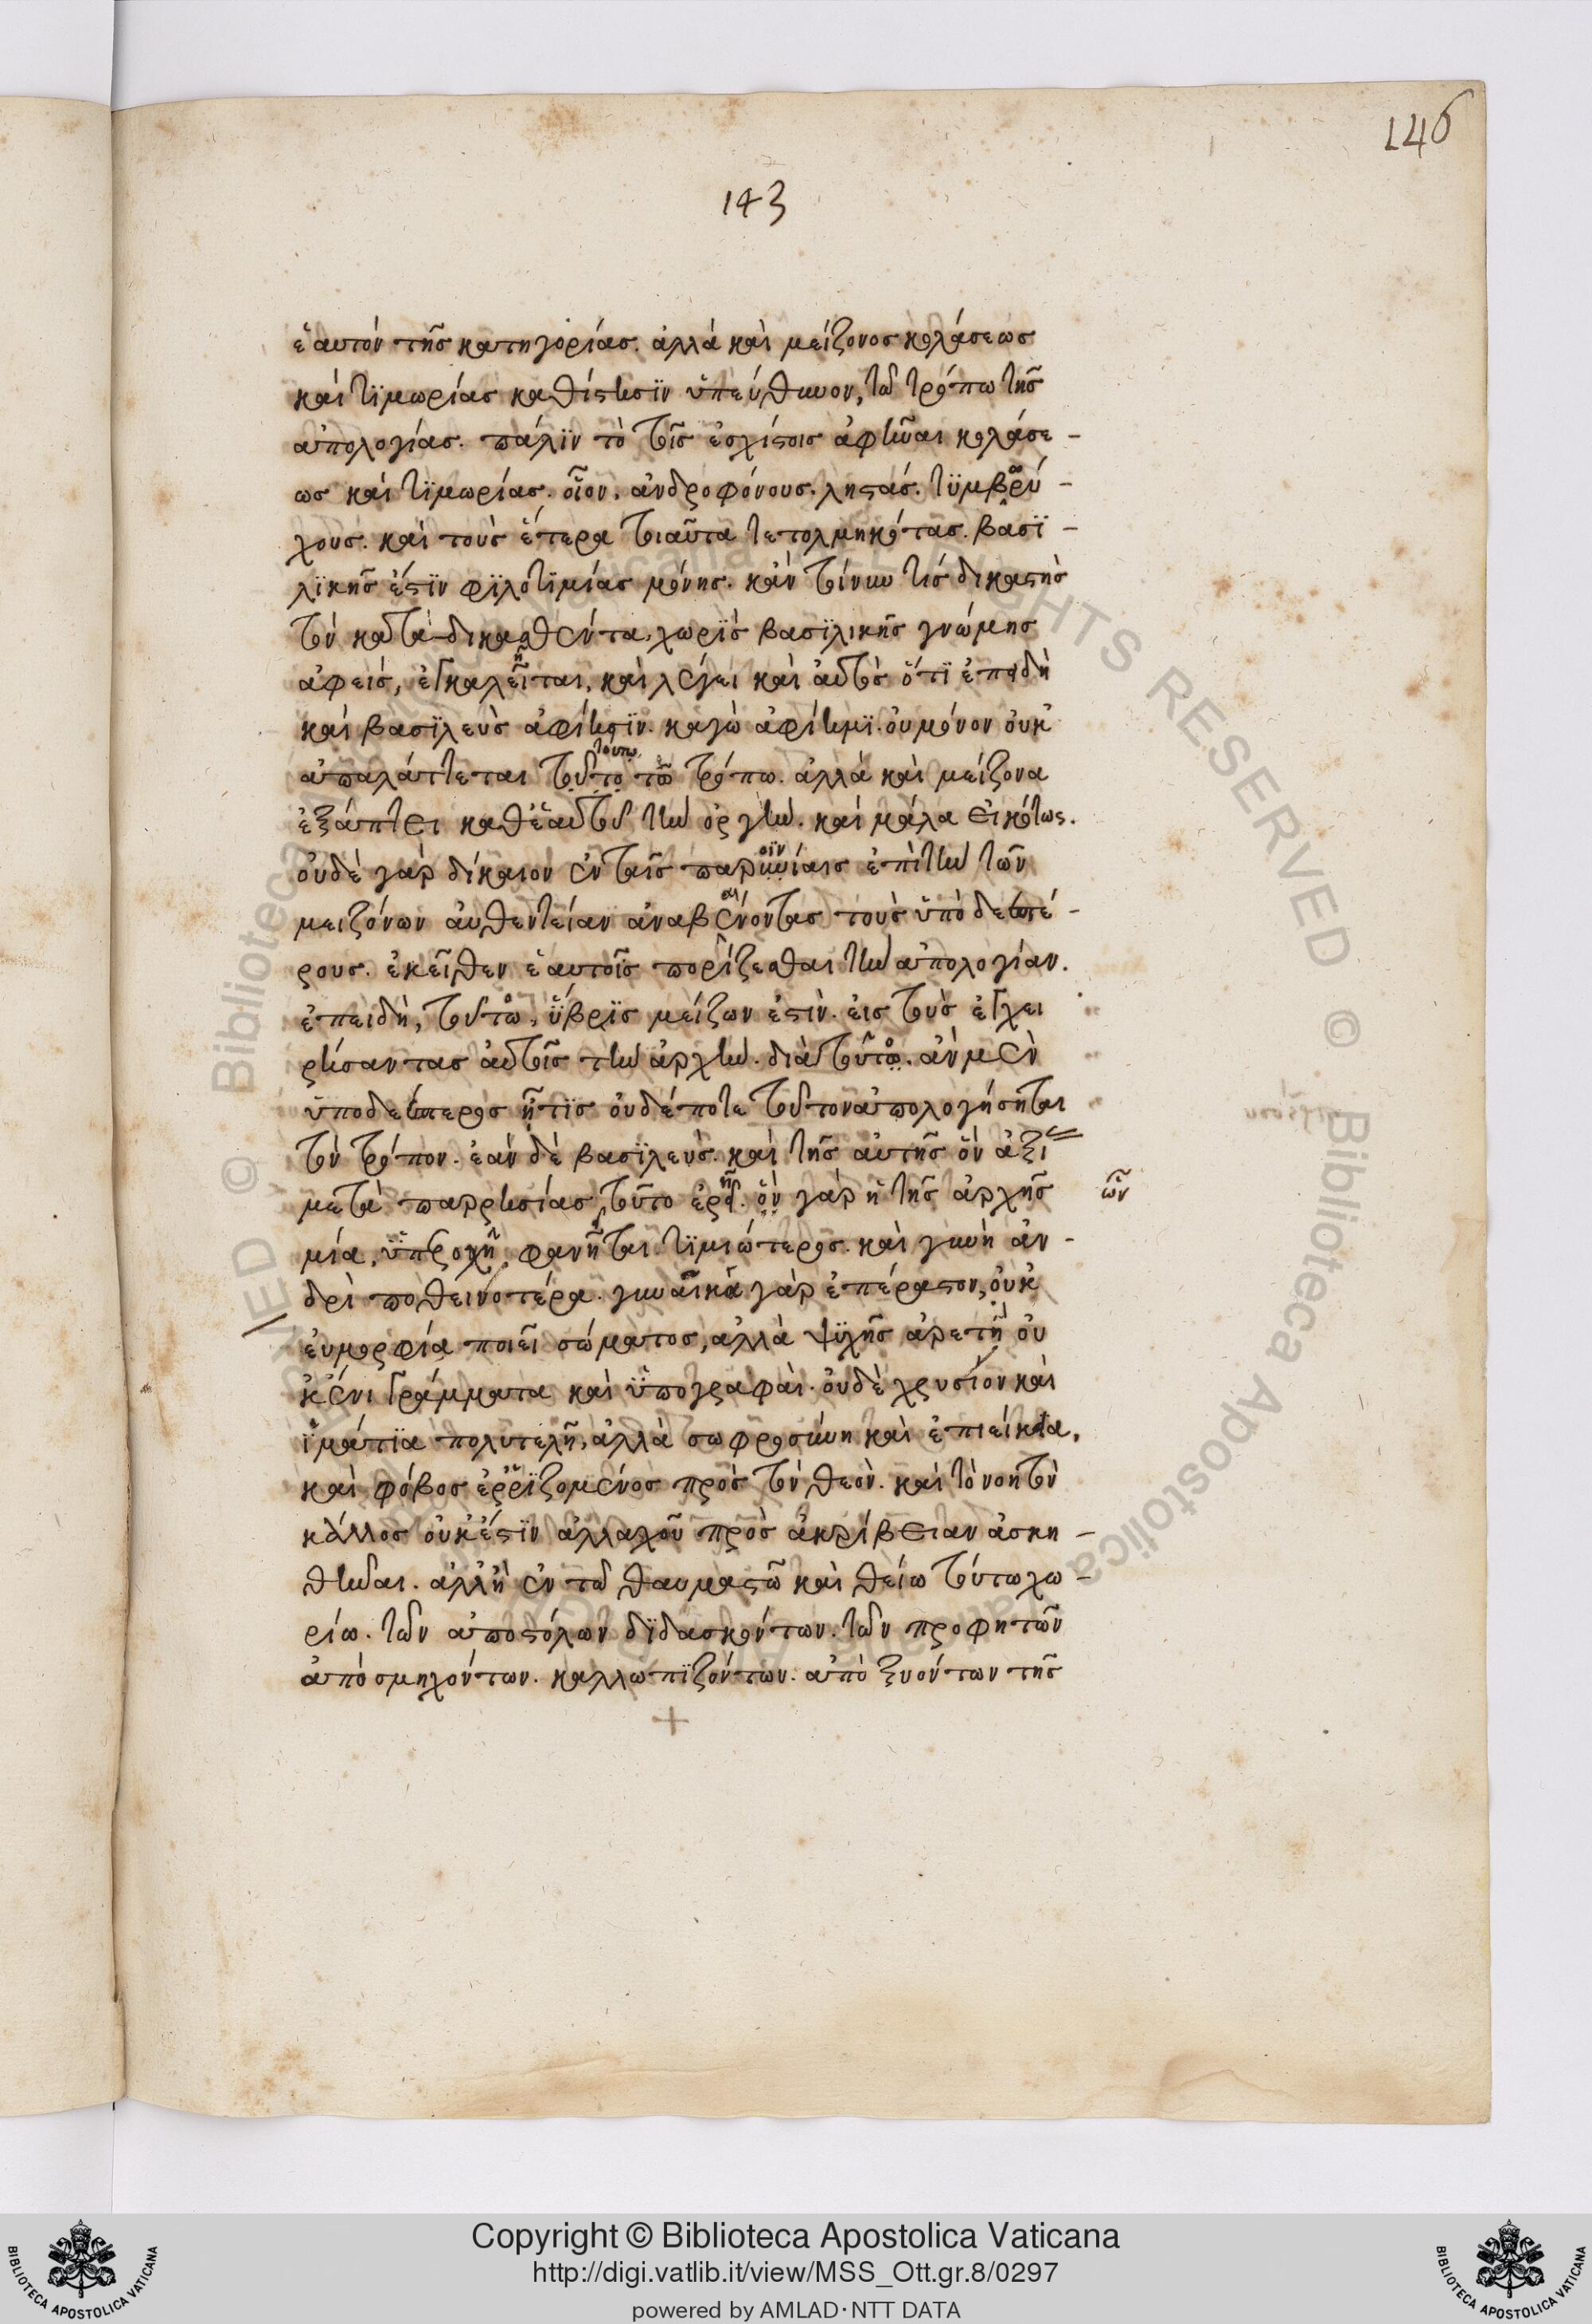 146
143
ἑαυτόν τῆς κατηγορίας. ἀλλά καὶ μείζονος κολάσεως
καὶ τϊμωρίας καθίστησϊν ὑπεύθυνον, τῶ τρόπω τῆς
ἀπολογίας. πάλϊν τὸ τοῖς ἐσχάτοις ἀφῆναι κολάσε-
ως καὶ τϊμωρίας. οἷον. ἀνδροφόνους. ληστάς. τϋμβωρύ-
χους. καὶ τοὺς ἕτερα τοιαῦτα τετολμηκότας. βασϊ-
λϊκῆς ἐστϊν φϊλοτϊμίας μόνης. κἂν τοίνυν τίς δικαστὴς
τὸν καταδικασθέντα, χωρϊς βασϊλικῆς γνώμης
ἀφεὶς, ἐγκαλεῖται, καὶ λέγει καὶ αὐτὸς ὅτϊ ἐπειδὴ
καὶ βασϊλεὺς ἀφίησϊν. καγὼ ἀφίημϊ. οὐ μόνον οὐκ
ἀπαλάττεται τούτο τῶ τρόπω. ἀλλά καὶ μείζονα
ἐξάπτει καθ' ἑαυτοῦ τὴν ὀργὴν. καὶ μάλα εἰκότως.
οὐδὲ γὰρ δίκαιον ἐν ταῖς παροινίαις ἐπὶ τὴν τῶν
μειζόνων αὐθεντείαν ἀναβαίνοντας τοὺς ὑποδεεστέ-
ρους. ἐκεῖθεν ἑαυτοῖς πορίζεσθαι τὴν ἀπολογίαν.
ἐπειδὴ, τούτω, ὕβρϊς μείζων ἐστὶν. εἰς τοὺς ἐγχει
ρήσαντας αὐτοῖς τὴν ἀρχὴν. διὰ τοῦτο. ἀν μὲν
ὑποδεέστερος ἦ τϊς οὐδέποτε τοῦτον ἀπολογήσηται
τὸν τρόπον. ἐὰν δὲ βασϊλεὺς. καὶ τῆς αὐτῆς ὃν ἀξί
μετὰ παρρησίας τοῦτο ἐρεῖ. ὃν γὰρ ἡ τῆς ἀρχῆς ὧν
μία, ὑπεροχῆ φανῆται τϊμιώτερος. καὶ γυνὴ ἀν-
δρὶ ποθεινοτέρα. γυναῖκα γὰρ ἐπέραστον, οὐκ
εὐμορφία ποιεῖ σώματος, ἀλλὰ ψϋχῆς ἀρετή οὐ
κ ἔνι γράμματα καὶ ὑπογραφαὶ. οὐδὲ χρυσίον καὶ
ἱμάτϊα πολυτελῆ, ἀλλὰ σωφροσύνη καὶ ἐπιείκεια,
καὶ φόβος ἐρρϊζομένος πρὸς τὸν θεὸν. καὶ τὸ νοητὸν
κάλλος οὐκ ἔστϊν ἀλλαχοῦ πρὸς ἀκρίβειαν ἀσκη-
θῆναι. ἀλλ' ἢ ἐν τῶ θαυμαστῶ καὶ θείω τούτω χω-
ρίω. τῶν ἀποστόλων δϊδασκόντων. τῶν προφητῶν
ἀποσμηχόντων. καλλωπϊζόντων. ἀποξυόντων τῆς
Copyright © Biblioteca Apostolica Vaticana
http://digi.vatlib.it/view/MSS_Ott.gr.8/0297
powered by AMLAD·NTT DATA